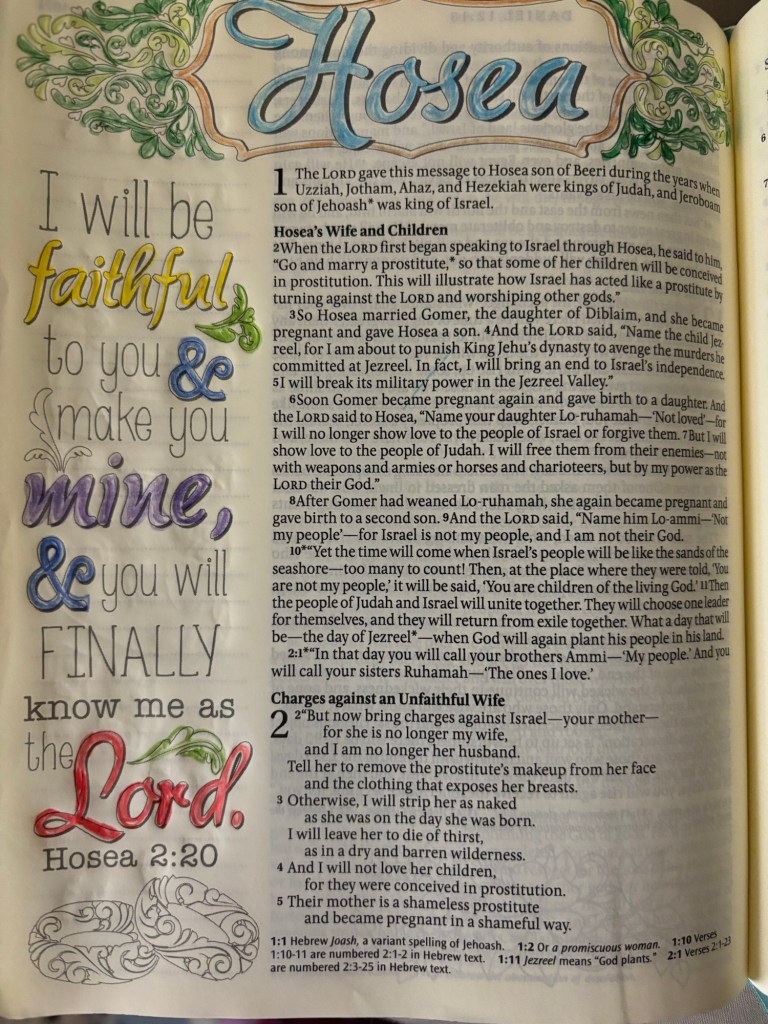 Hosea
I will be
faithful
to you &
make you
mine,
& you will
FINALLY
know me as
the
Lord.
Hosea 2:20
1 The LORD gave this message to Hosea son of Beeri during the years when
Uzziah, Jotham, Ahaz, and Hezekiah were kings of Judah, and Jeroboam
son of Jehoash* was king of Israel.
Hosea's Wife and Children
2When the LORD first began speaking to Israel through Hosea, he said to him,
“Go and marry a prostitute,* so that some of her children will be conceived
in prostitution. This will illustrate how Israel has acted like a prostitute by
turning against the LORD and worshiping other gods.”
3So Hosea married Gomer, the daughter of Diblaim, and she became
pregnant and gave Hosea a son. 4And the LORD said, “Name the child Jez-
reel, for I am about to punish King Jehu's dynasty to avenge the murders he
committed at Jezreel. In fact, I will bring an end to Israel's independence.
5I will break its military power in the Jezreel Valley.”
6Soon Gomer became pregnant again and gave birth to a daughter. And
the LORD said to Hosea, “Name your daughter Lo-ruhamah—‘Not loved’—for
I will no longer show love to the people of Israel or forgive them. 7But I will
show love to the people of Judah. I will free them from their enemies—not
with weapons and armies or horses and charioteers, but by my power as the
LORD their God.”
8After Gomer had weaned Lo-ruhamah, she again became pregnant and
gave birth to a second son. 9And the LORD said, “Name him Lo-ammi—‘Not
my people’—for Israel is not my people, and I am not their God.
10*“Yet the time will come when Israel's people will be like the sands of the
seashore—too many to count! Then, at the place where they were told, ‘You
are not my people,’ it will be said, ‘You are children of the living God.’ 11Then
the people of Judah and Israel will unite together. They will choose one leader
for themselves, and they will return from exile together. What a day that will
be—the day of Jezreel*—when God will again plant his people in his land.
2:1*“In that day you will call your brothers Ammi—‘My people.’ And you
will call your sisters Ruhamah—‘The ones I love.’
Charges against an Unfaithful Wife
2 2“But now bring charges against Israel—your mother—
for she is no longer my wife,
and I am no longer her husband.
Tell her to remove the prostitute's makeup from her face
and the clothing that exposes her breasts.
3 Otherwise, I will strip her as naked
as she was on the day she was born.
I will leave her to die of thirst,
as in a dry and barren wilderness.
4 And I will not love her children,
for they were conceived in prostitution.
5 Their mother is a shameless prostitute
and became pregnant in a shameful way.
1:1 Hebrew Joash, a variant spelling of Jehoash. 1:2 Or a promiscuous woman. 1:10 Verses
1:10-11 are numbered 2:1-2 in Hebrew text. 1:11 Jezreel means “God plants.” 2:1 Verses 2:1-23
are numbered 2:3-25 in Hebrew text.